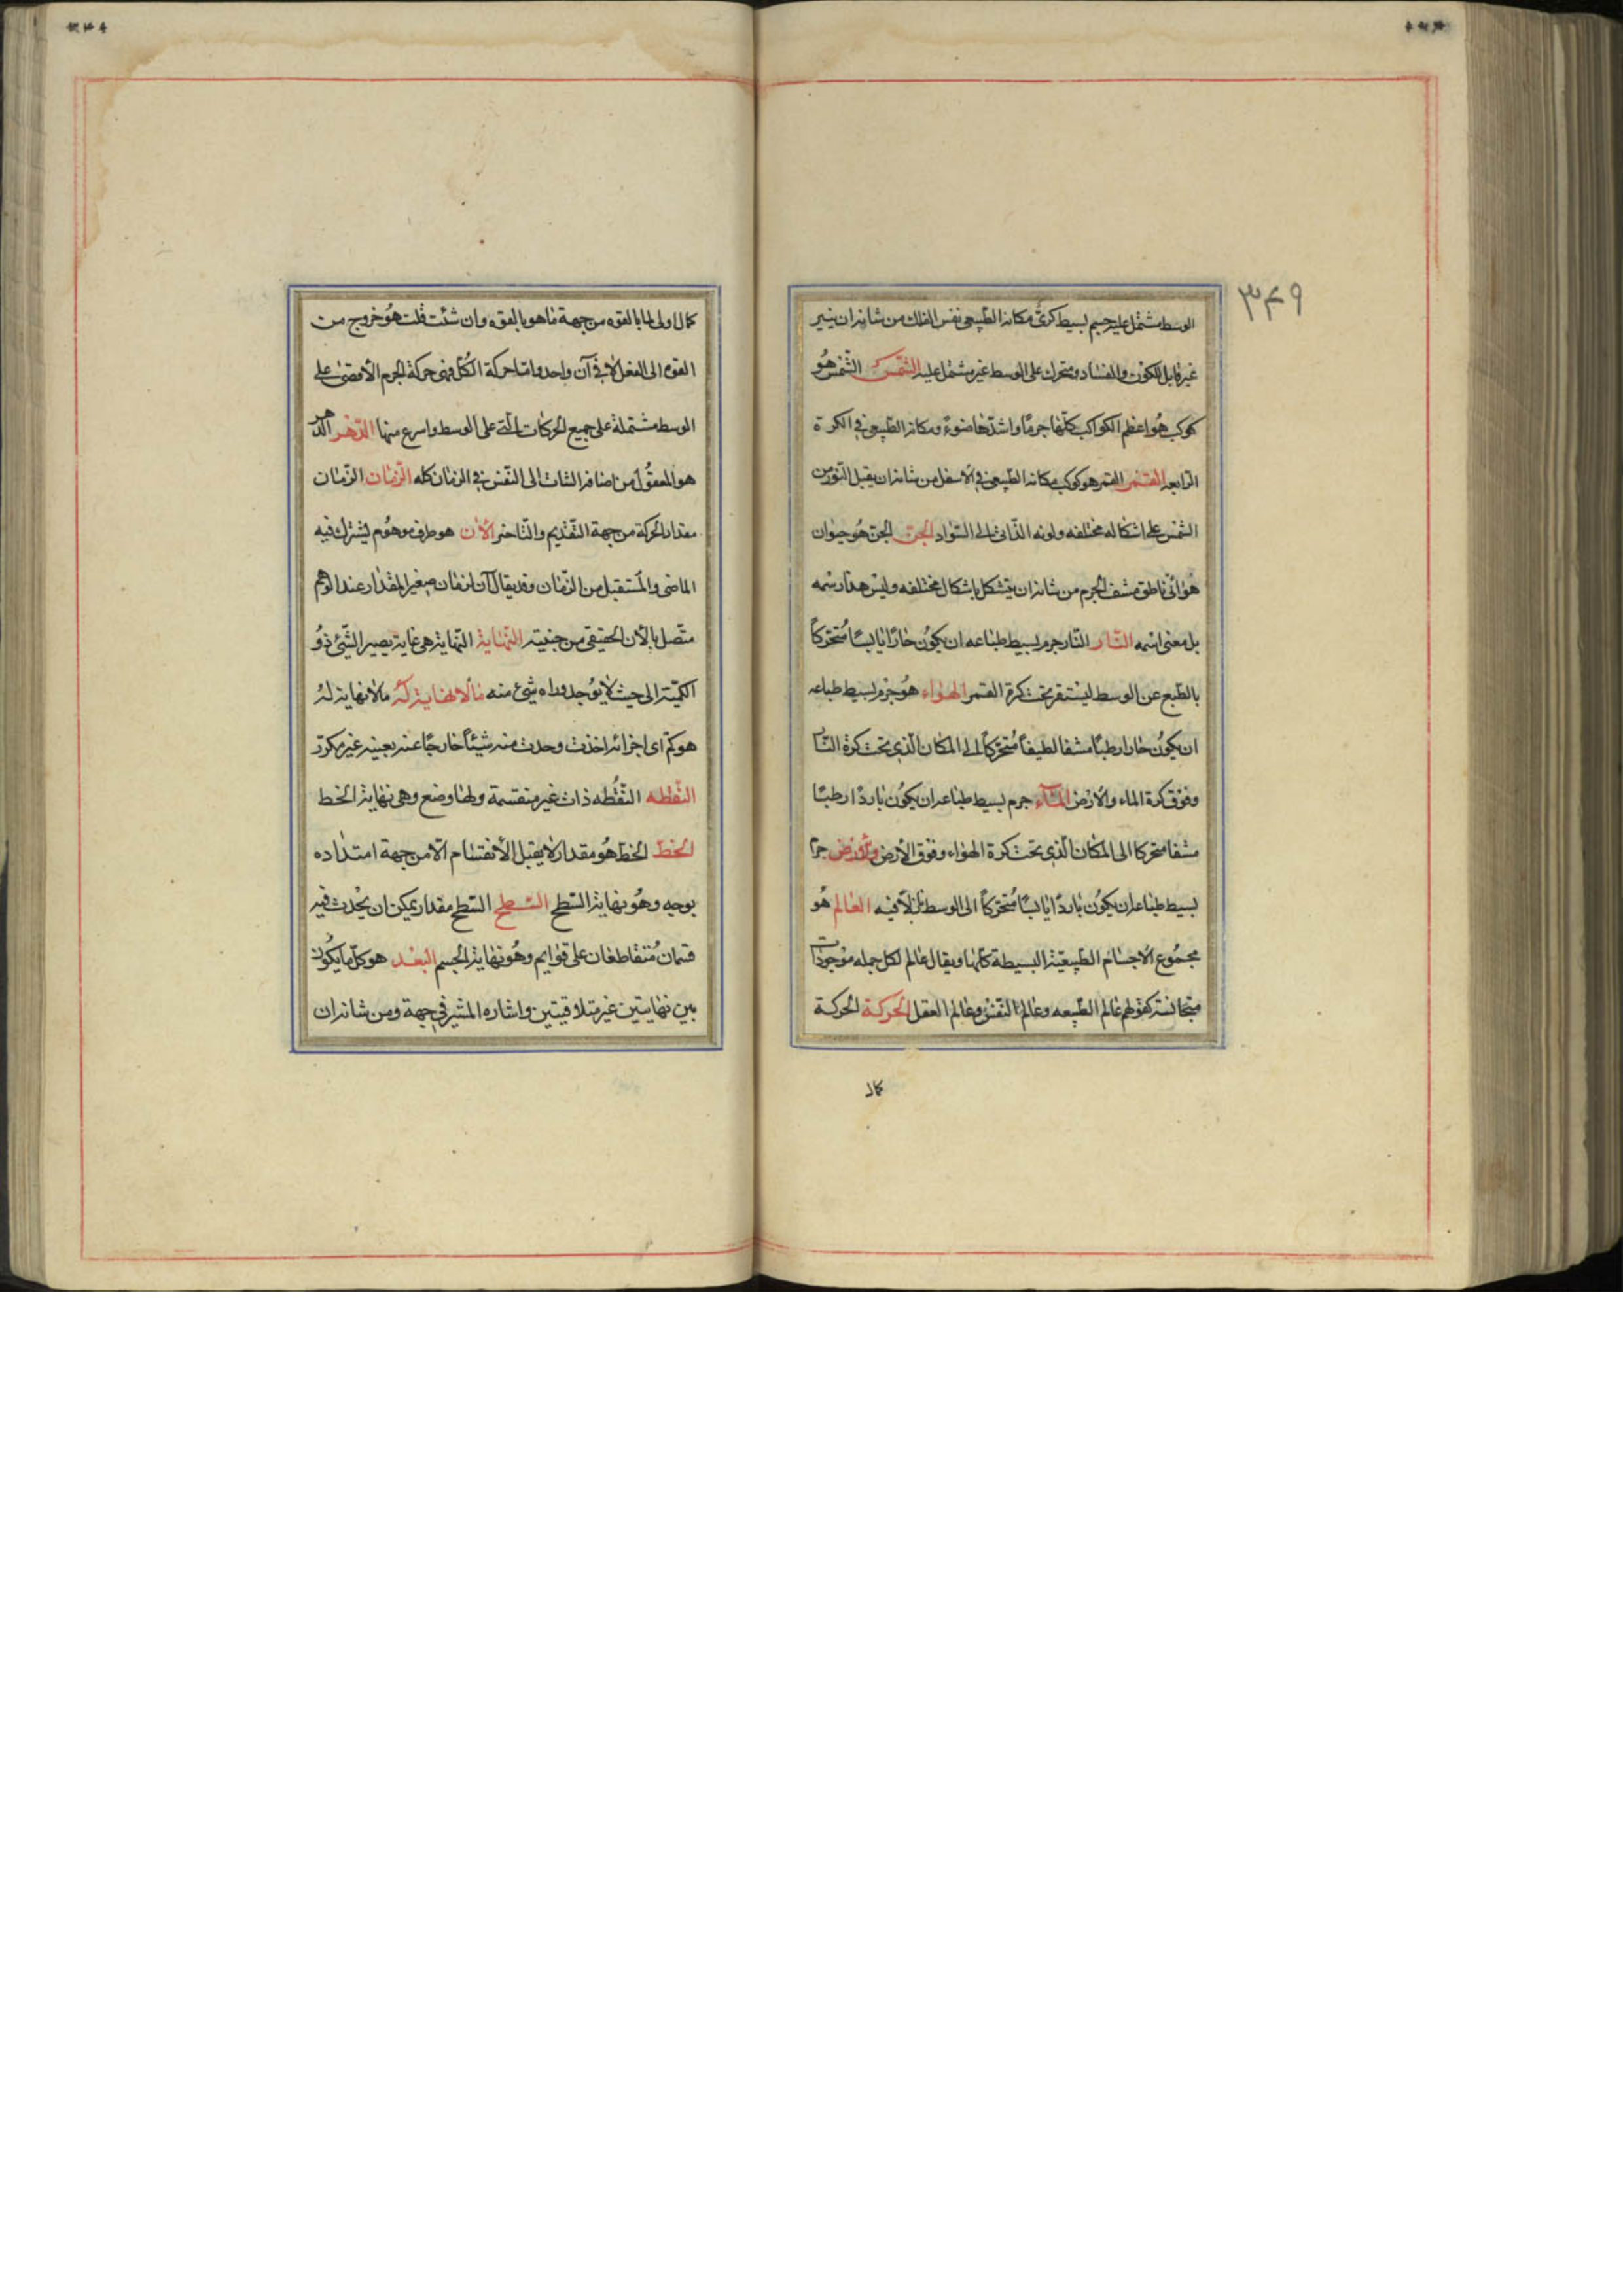 ٣٤٩
الوسط مشتمل عليه جسم بسيط كرىّ مكانه الطبيعى نفس الفلك من شانه ان ينير
غير قابل للكون والفساد ومتحرك على الوسط غير مشتمل عليه الشمس الشمس هُو
كوكب هُو اعظم الكواكب كلّها جرمًا واشدّها ضوءً ومكانه الطبيعى فى الكرة
الرابعه القمر القمر هو كوكب مكانه الطبيعى فى الاسفل من شانه ان يقبل النّور من
الشمس على اشكال مختلفه ولونه الذّاتى الى السّواد الجن الجن هُو حيوان
هوائى ناطق مشف الجرم من شانه ان يتشكل باشكال مختلفه وليس هذا رسمه
بل معنى اسمه النّار النّار جرم بسيط طباعه ان يكوُن حارًا يابسًا مُتحرّكاً
بالطبع عن الوسط ليستقر تحت كرة القمر الهواء هُو جرم بسيط طباعه
ان يكوُن حارا رطبًا مشفا لطيفاً مُتحرّكاً الى المكان الّذى تحت كرة النّار
وفوق كرة الماء والارض المآء جرم بسيط طباعه ان يكوُن باردًا رطبًا
مشفا متحركا الى المكان الّذى تحت كرة الهواء وفوق الأرض والارض جرم
بسيط طباعه ان يكوُن باردًا يابسًا مُتحرّكاً الى الوسط نازلاً فيه العالم هُو
مجمُوع الاجسام الطبيعيّة البسيطة كلّها ويقال عالم لكل جمله موجودات
متجانسة كقولهم عالم الطّبيعه وعالم النّفس وعالم العقل الحركة الحركة
كمال
كمال اولى لما بالقوه من جهة ما هو بالقوه وان شئت قلت هُو خروج من
القوه الى الفعل لا فى آن واحد وامّا حركة الكُل فهى حركة الجرم الأقصى على
الوسط مشتملة على جميع الحركات الّتى على الوسط واسرع منها الدّهر الدّهر
هو المعقُول من اضافة الثبات الى النّفس فى الزمان كله الزّمان الزّمان
مقدار الحركة من جهة التّقديم والتّاخر الأن هو طرف موهُوم ليشترك فيه
الماضى والمُستقبل من الزّمان وقد يقال آن لزمان صغير المقدار عند الوهم
متّصل بالأن الحقيقى من جنبته النّهاية النّهاية هى غاية يصير الشّئ ذوُ
الكميّة الى حيث لا يوُجد وراه شئ منه ما لا نهاية لهُ ما لا نهاية لهُ
هو كم اى اجزائه اخذت وجدت منه شيئاً خارجًا عنه بعينه غير مكرّر
النّقطه النّقُطه ذات غير منقسمة ولها وضع وهى نهاية الخط
الخط الخط هُو مقدار لا يقبل الأنقسام الّا من جهة امتداده
بوجه وهُو نهاية السّطح السّطح السّطح مقدار يمكن ان يحُدث فيه
قسمان مُتقاطعان على قوايم وهُو نهاية الجسم البُعد هو كلّ ما يكُون
بين نهايتين غير متلاقيتين واشاره المشير فى جهة ومن شانه ان